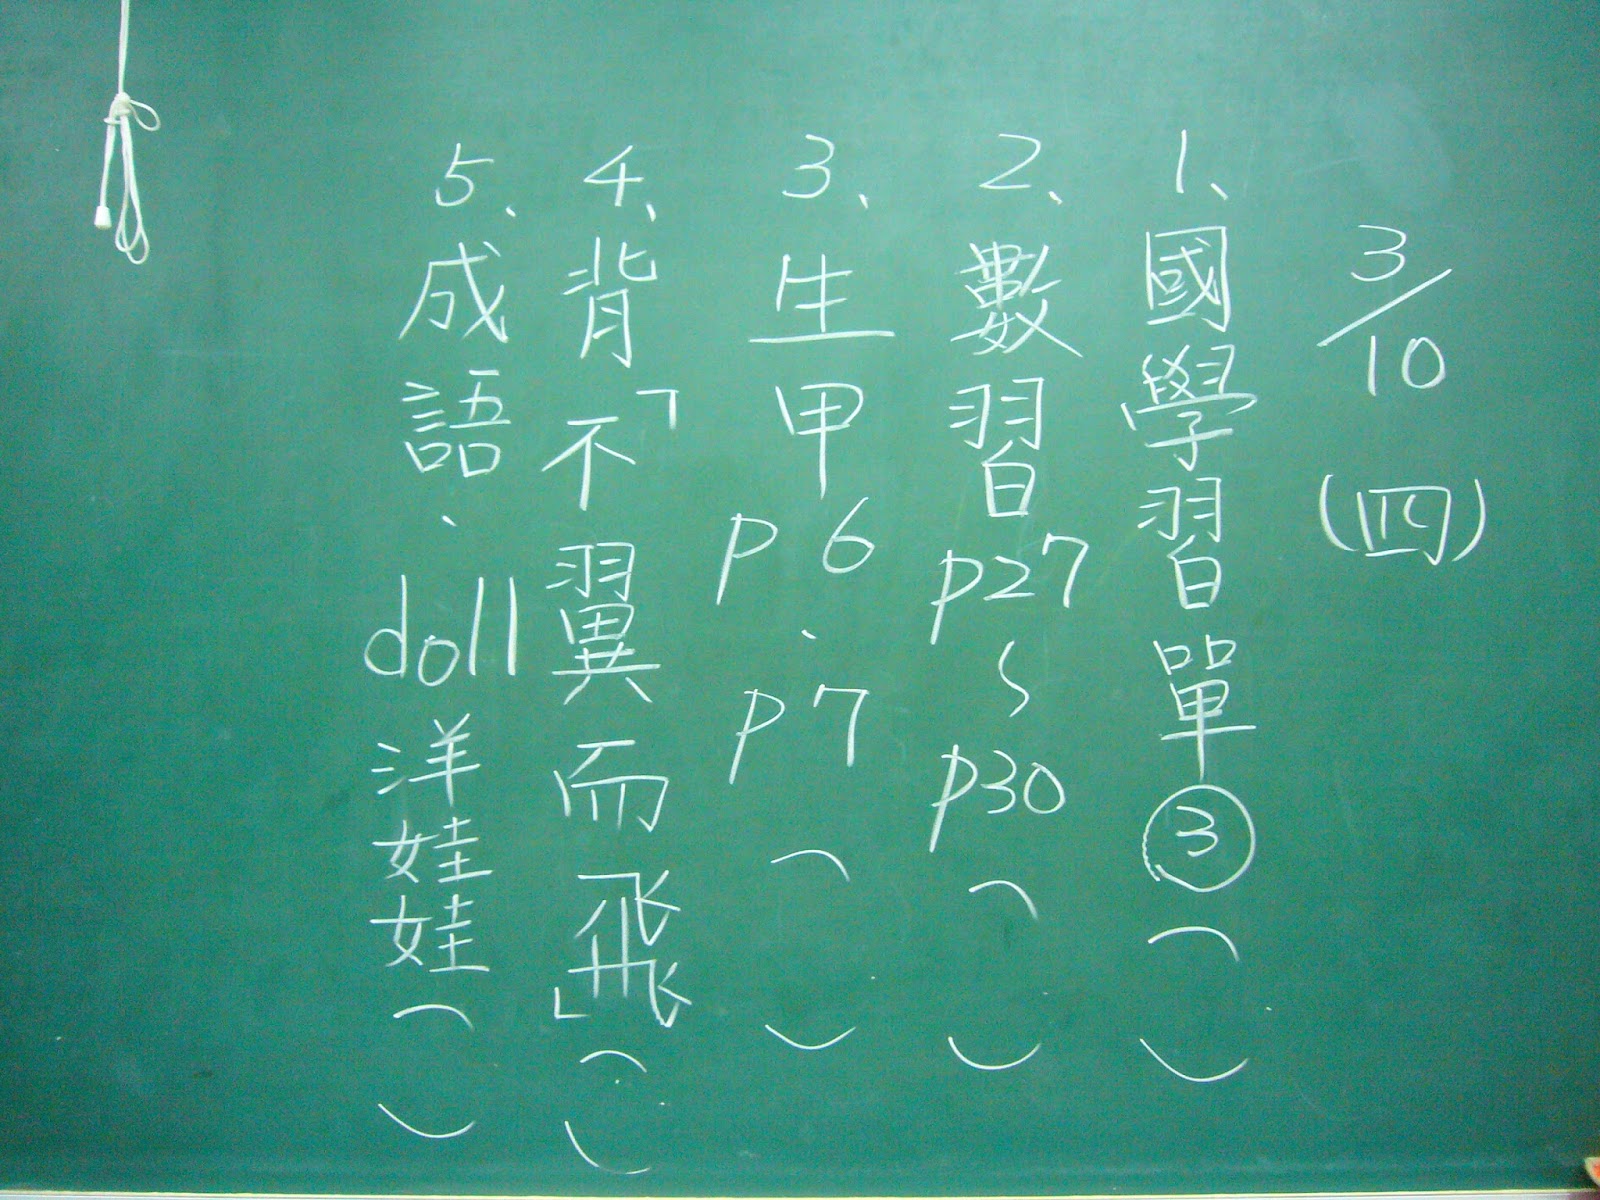 3/10（四）
1、國學習單③（ ）
2、數習p27～p30（ ）
3、生甲p6、p7（ ）
4、背「不翼而飛」（ ）
5、成語、doll洋娃娃（ ）